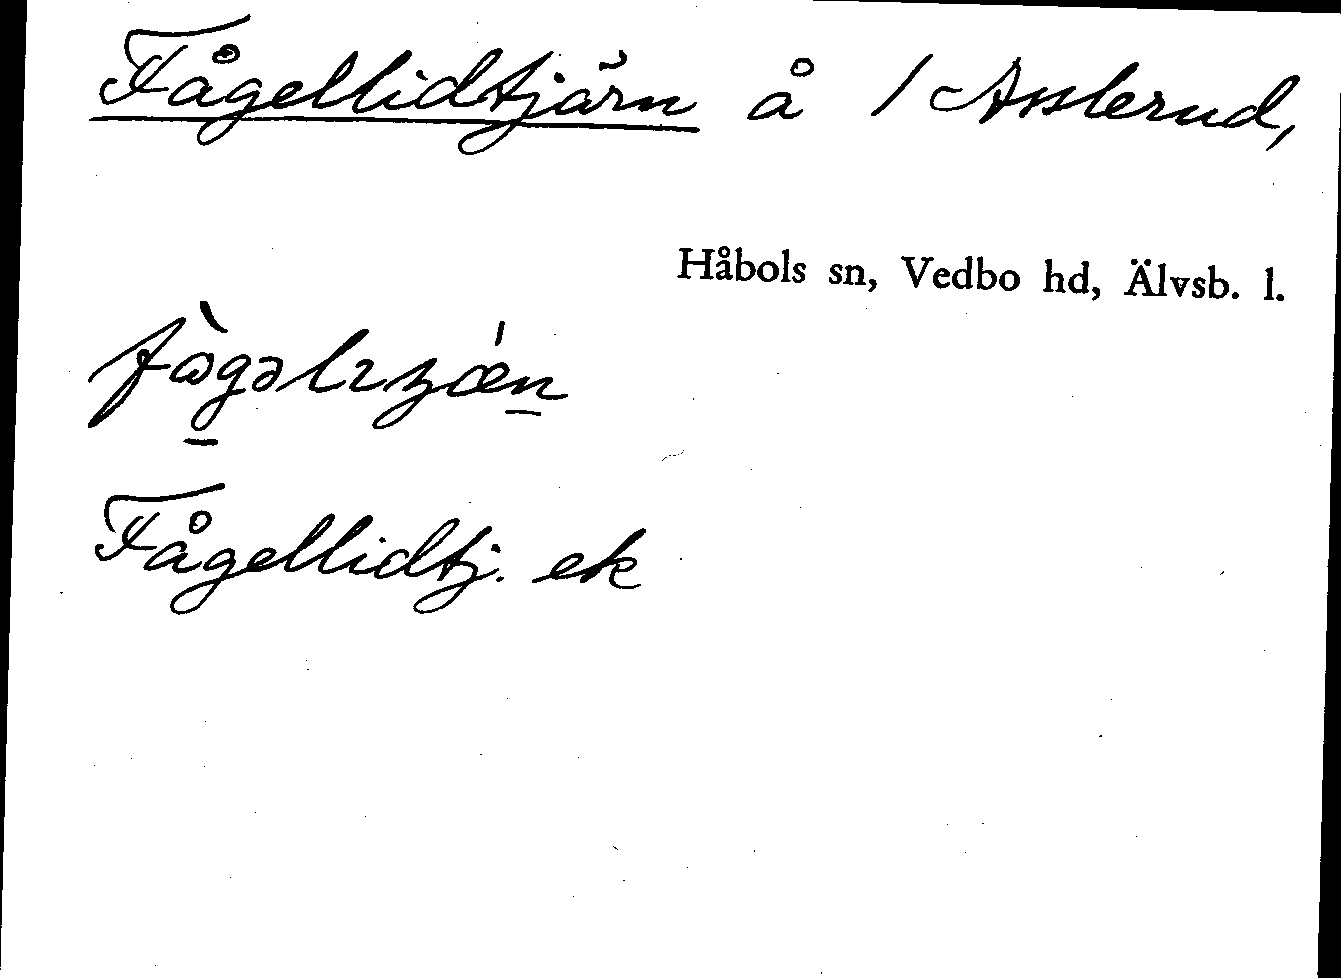 Fågellidtjärn å / Asslerud,
Håbols sn, Vedbo hd, Älvsb. l.
Fågellidtj. ek